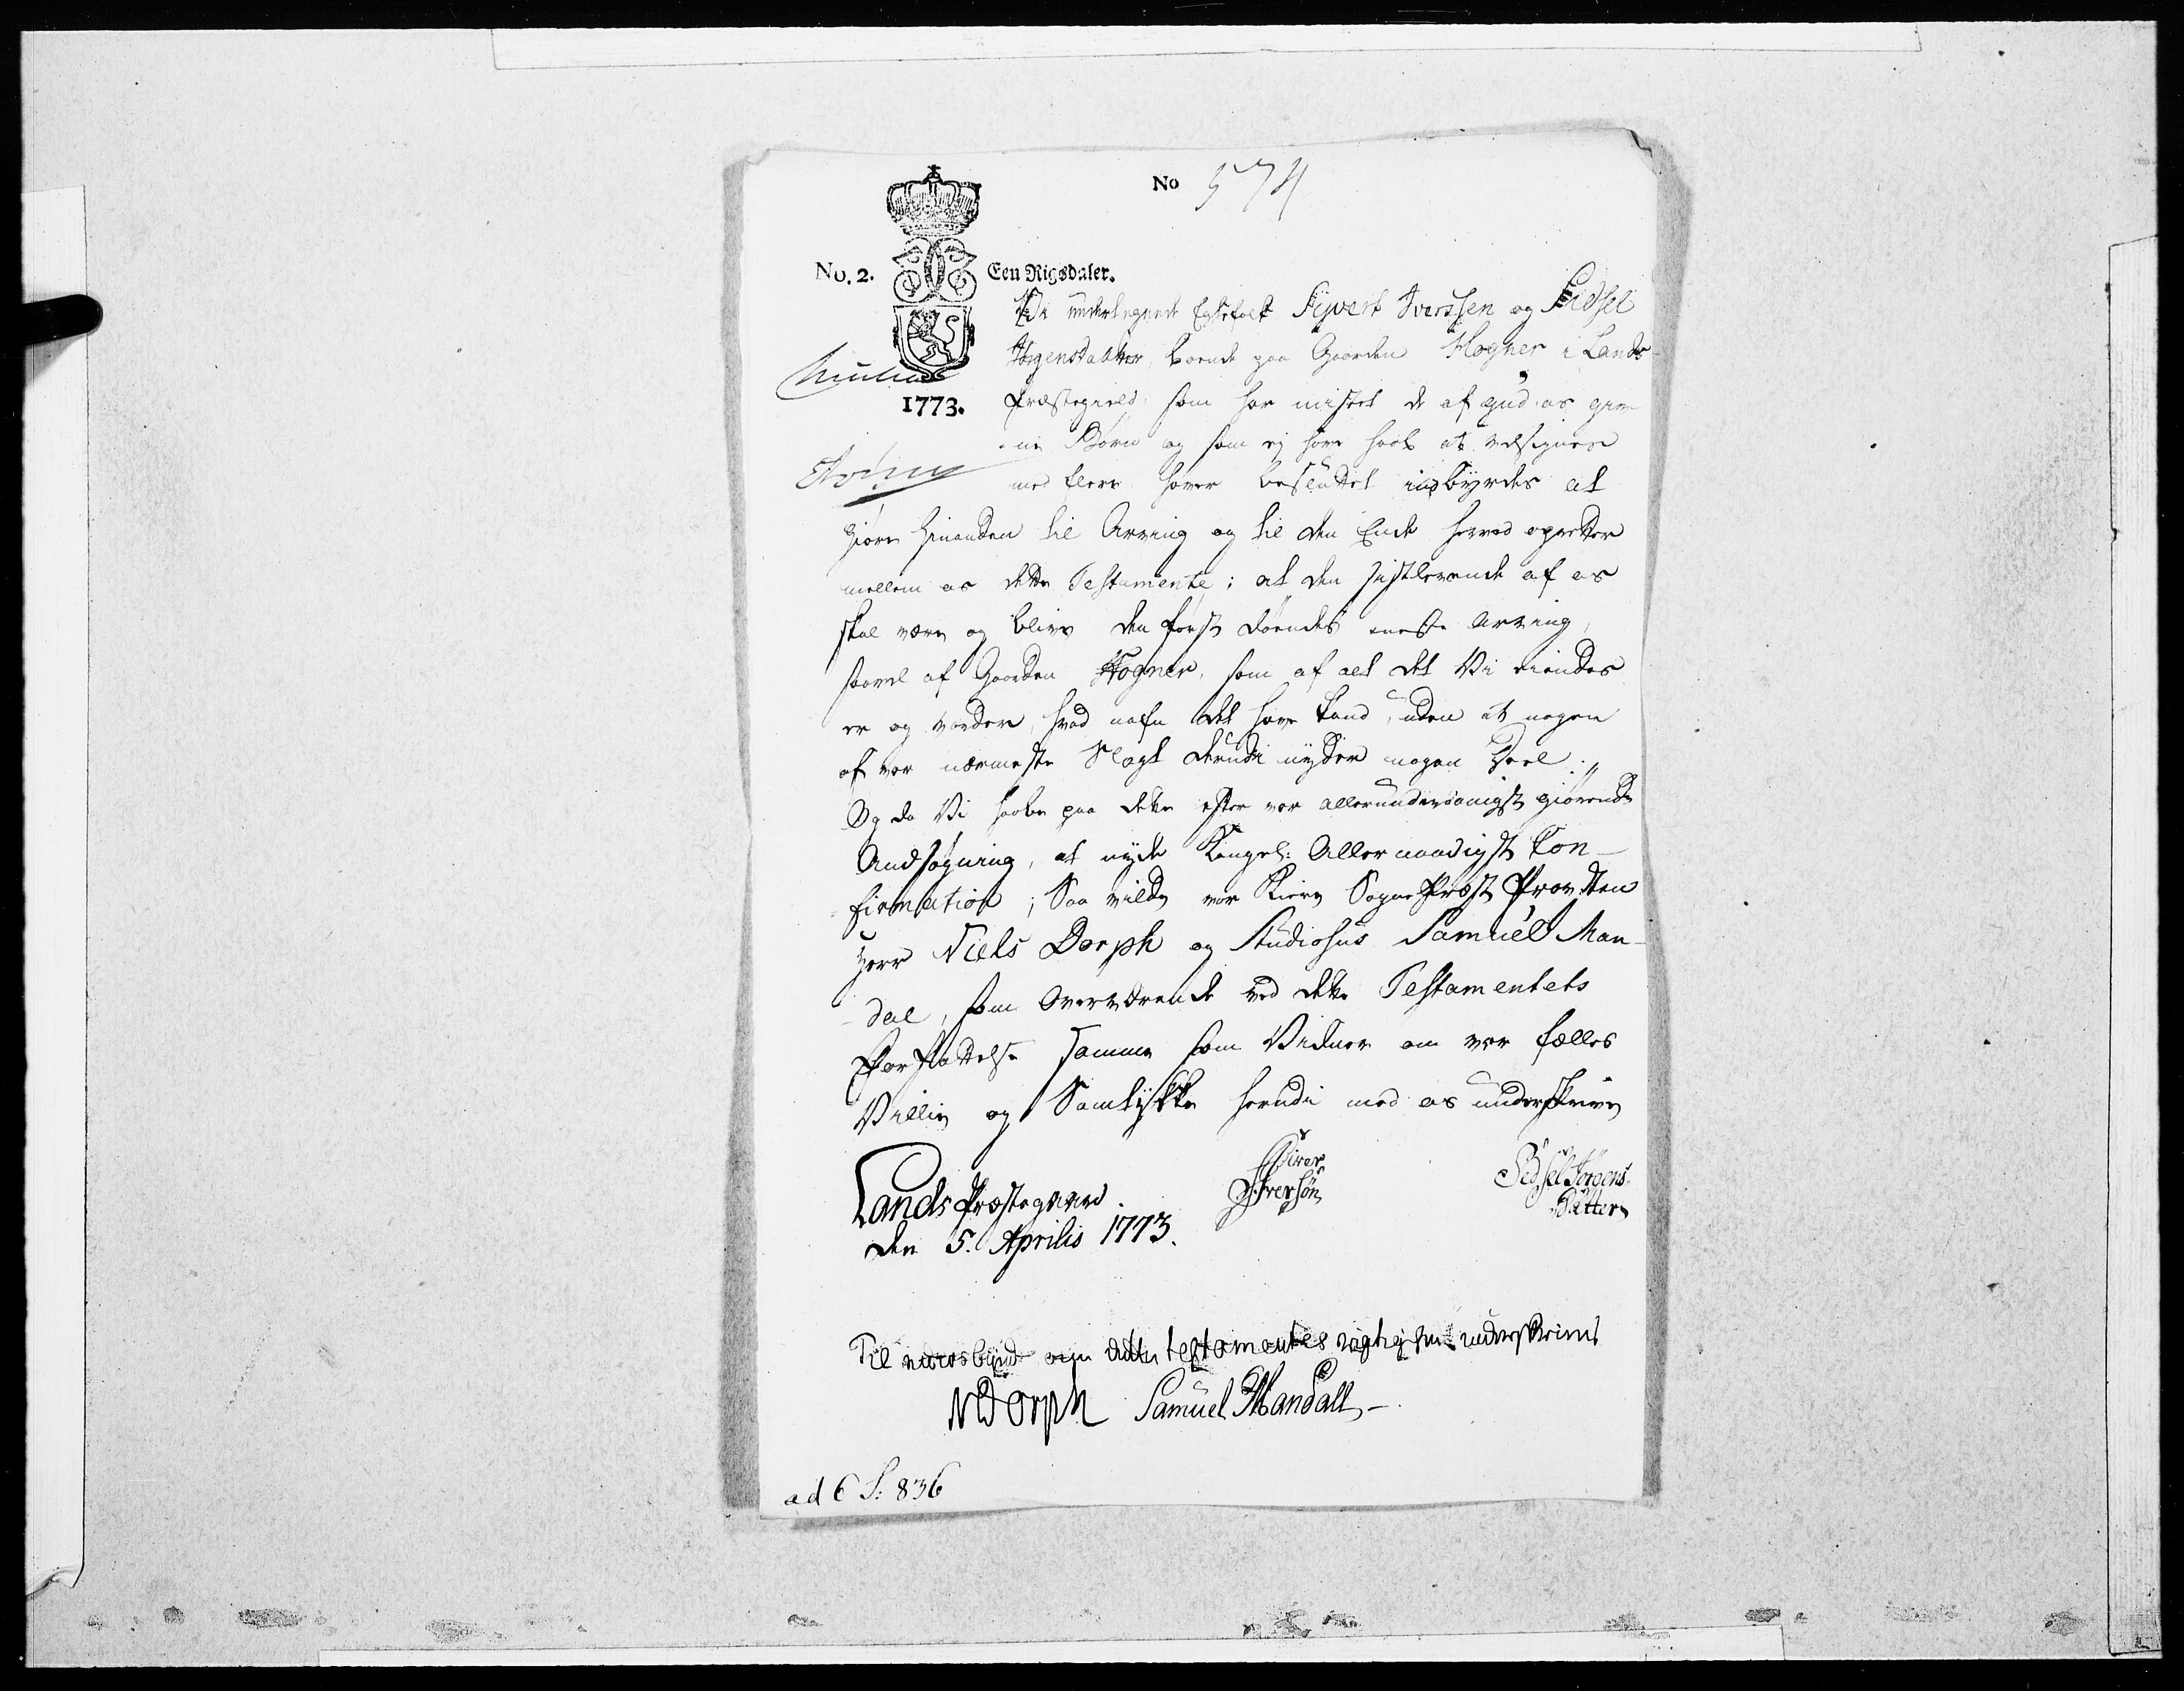 No 574
No. 2. Een Rigsdaler.
Vi undertegnede Egtefolk Sywert Iverssen og Sidsel
Jørgensdatter, boende paa Gaarden Hogner i Lands
1773.
Præstegield, som har mistet de af Gud os giv-
ne Børn og som ej have haab at velsignes
med flere haver besluttet indbyrdes at
giøre hinanden til Arving og til den Ende herved opretter
mellem os dette Testamente; at den sistlevende af os
skal være og blive den først døendes eneste Arving,
saavel af Gaarden Hogner, som af alt det Vi eiendes
er og vorder, hvad nafn det have kand, uden at nogen
af vor nærmeste Slægt derudi nyder nogen Deel.
Og da Vi haabe paa dette efter vor allerunderdanigst giørende
Andsøgning, at nyde Kongel: Allernaadigst Con-
firmation; Saa vilde vor Kiere SognePræst Provsten
Herr Niels Dorph og Studiosus Samuel Man-
dal, som Overværende ved dette Testamentets
Forfattelse samme som Vidner om vor fælles
Villie og Samtykke herudi med os underskrive
Lands Præstegaard
den 5. Aprilis 1773.
Siver
Iversøn
Sidsel Jørgens
Datter
Til vitterlighed om dette testamentes rigtighed underskrives
NDorph Samuel Mandall
ad 6 S: 836